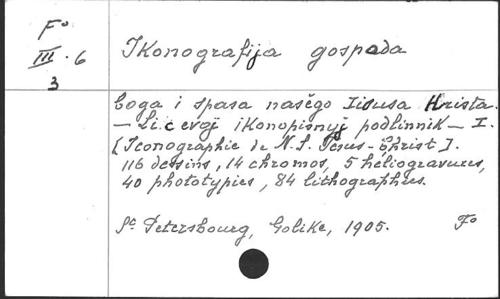 Fº
III. 6
3
Ikonografija gospoda
boga i spasa našego Iisusa Hrista.
— Licevoj ikonopisnyj podlinnik — I.
[Iconographie de N. S. Jésus-Christ].
116 dessins, 14 chromos, 5 héliogravures,
40 phototypies, 84 lithographies.
St Petersbourg, Golike, 1905. Fº